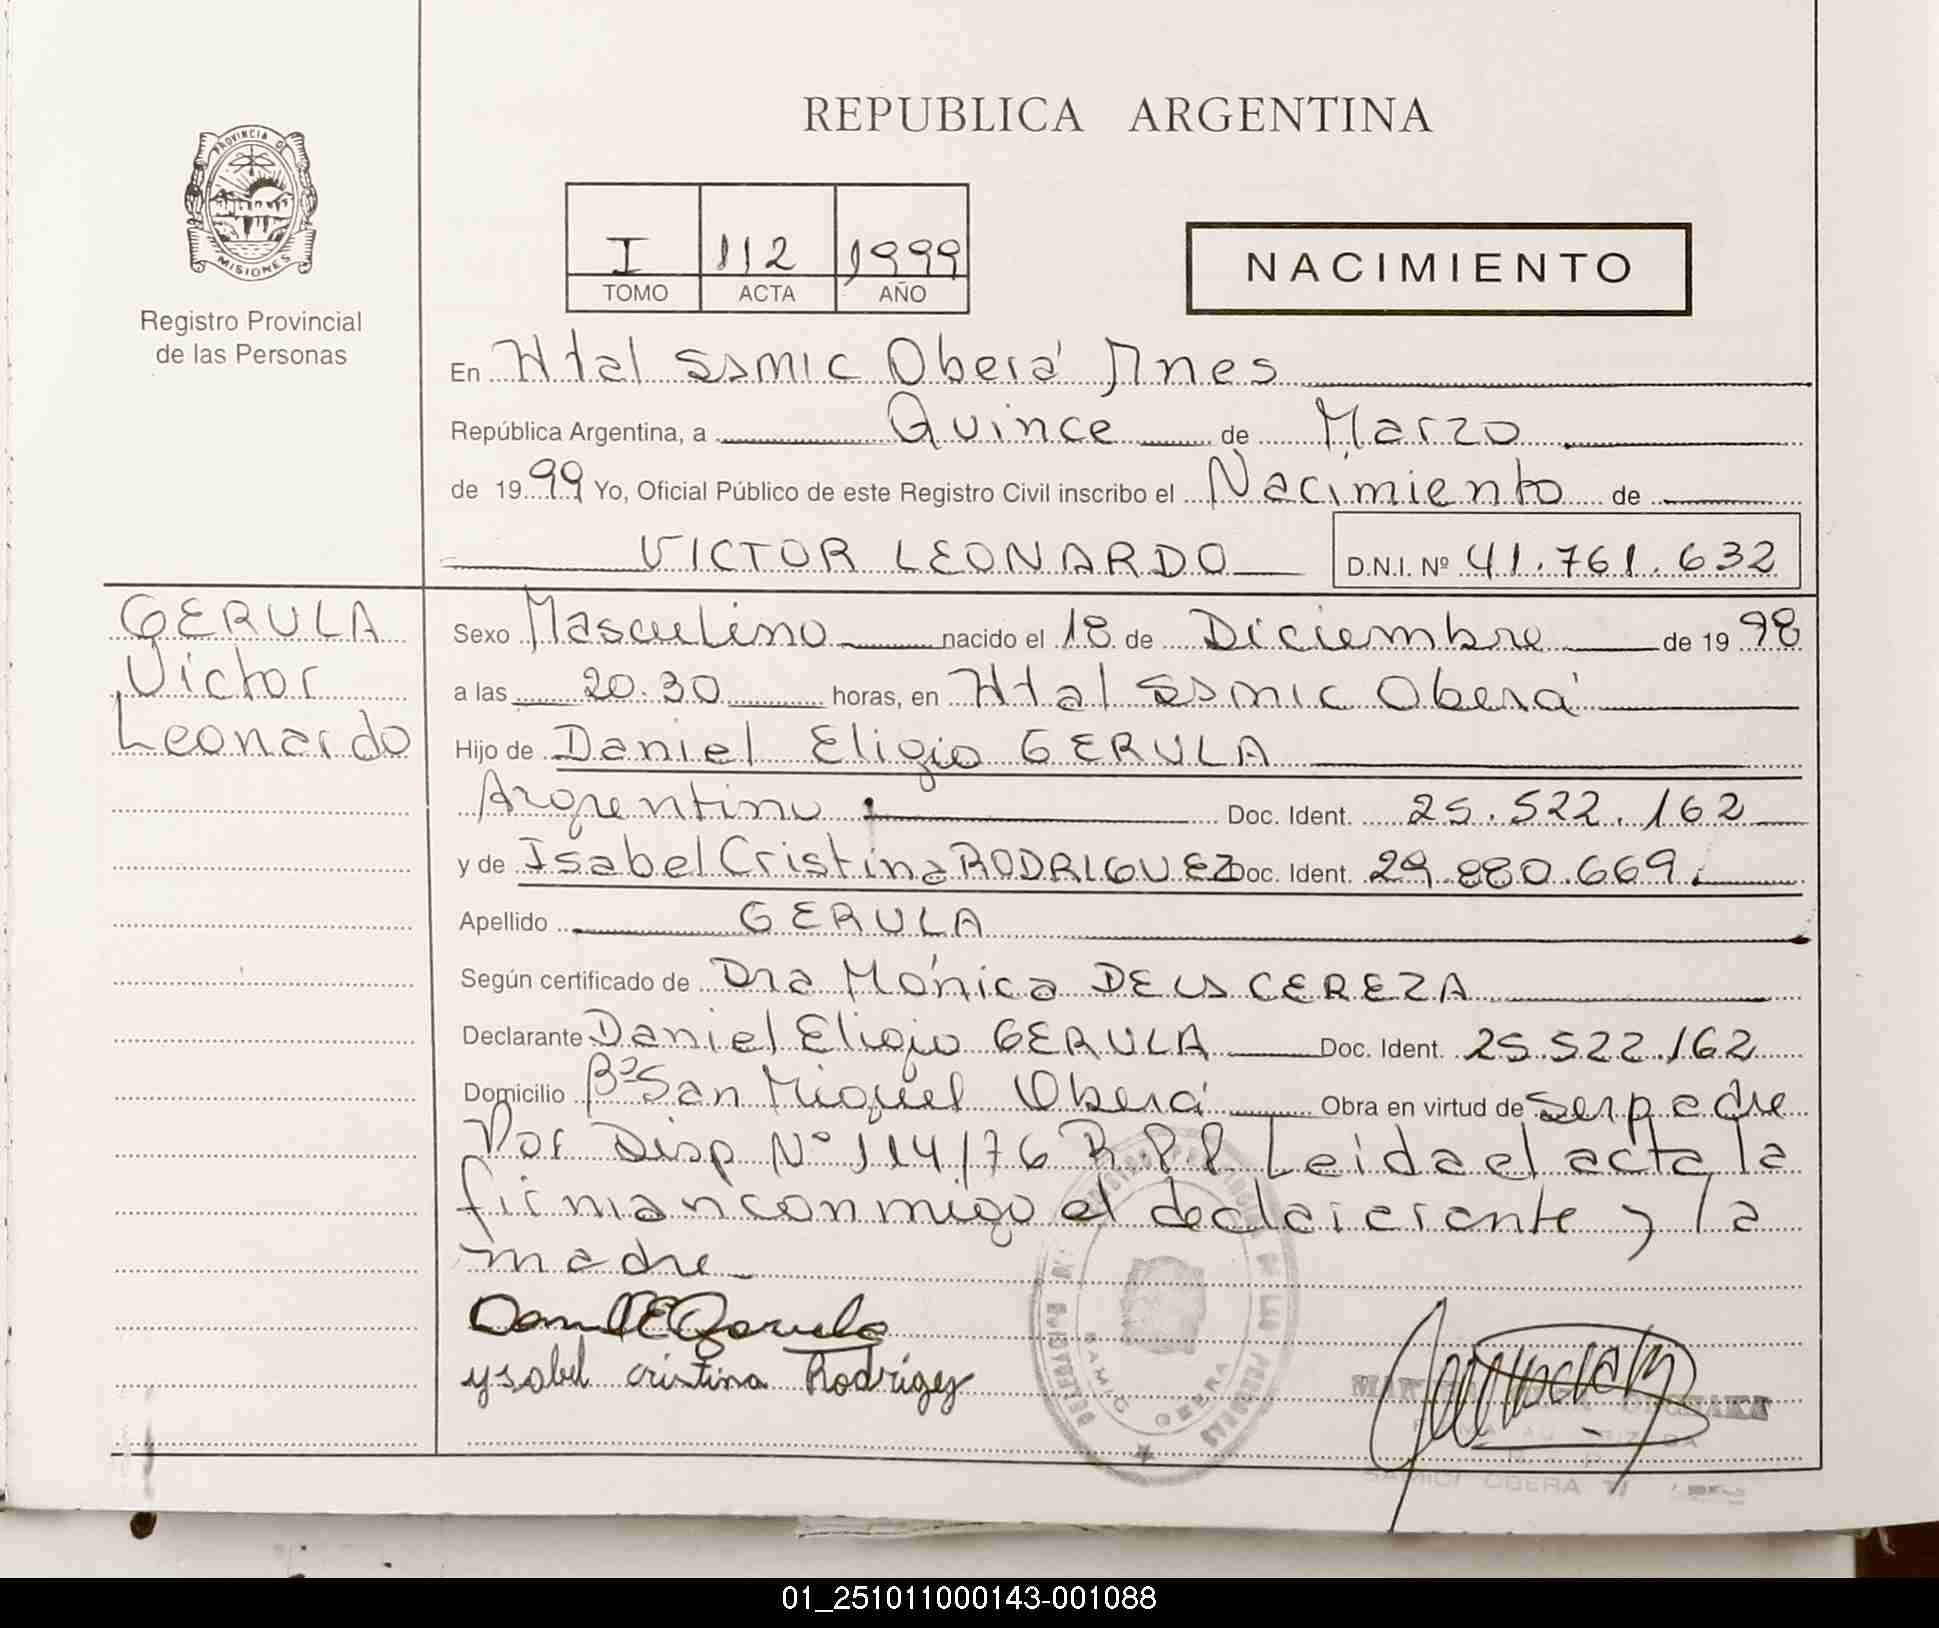 REPUBLICA ARGENTINA
PROVINCIA DE
MISIONES
Registro Provincial
de las Personas
I 112 1999
TOMO ACTA AÑO
NACIMIENTO
En Htal SSMIC Oberá Mnes
República Argentina, a Quince de Marzo
de 1999 Yo, Oficial Público de este Registro Civil inscribo el Nacimiento de
VICTOR LEONARDO D.N.I. Nº 41.761.632
GERULA
Victor
Leonardo
Sexo Masculino nacido el 18 de Diciembre de 1998
a las 20.30 horas, en Htal SSMIC Oberá
Hijo de Daniel Eligio GERULA
Argentino Doc. Ident. 25.522.162
y de Isabel Cristina RODRIGUEZ Doc. Ident. 29.880.669.
Apellido GERULA
Según certificado de Dra Mónica CEREZA
Declarante Daniel Eligio GERULA Doc. Ident. 25.522.162
Domicilio Bº San Miguel Oberá Obra en virtud de ser padre
Por Disp Nº 114/76 R.P.P. Leida el acta la
firman conmigo el declarerante y la
madre
Daniel E Gerula
ysabel cristina Rodrigez
SAMIC OBERA
01_251011000143-001088